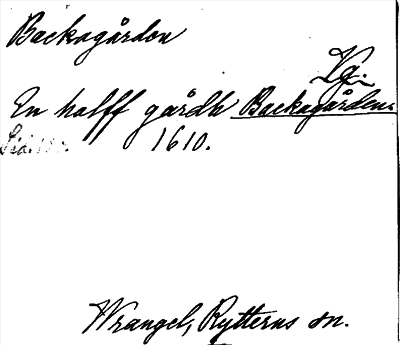 Backagården
Vg.
En halff gårdh Backagården.
1610.
Wrangel, Rytterns sn.